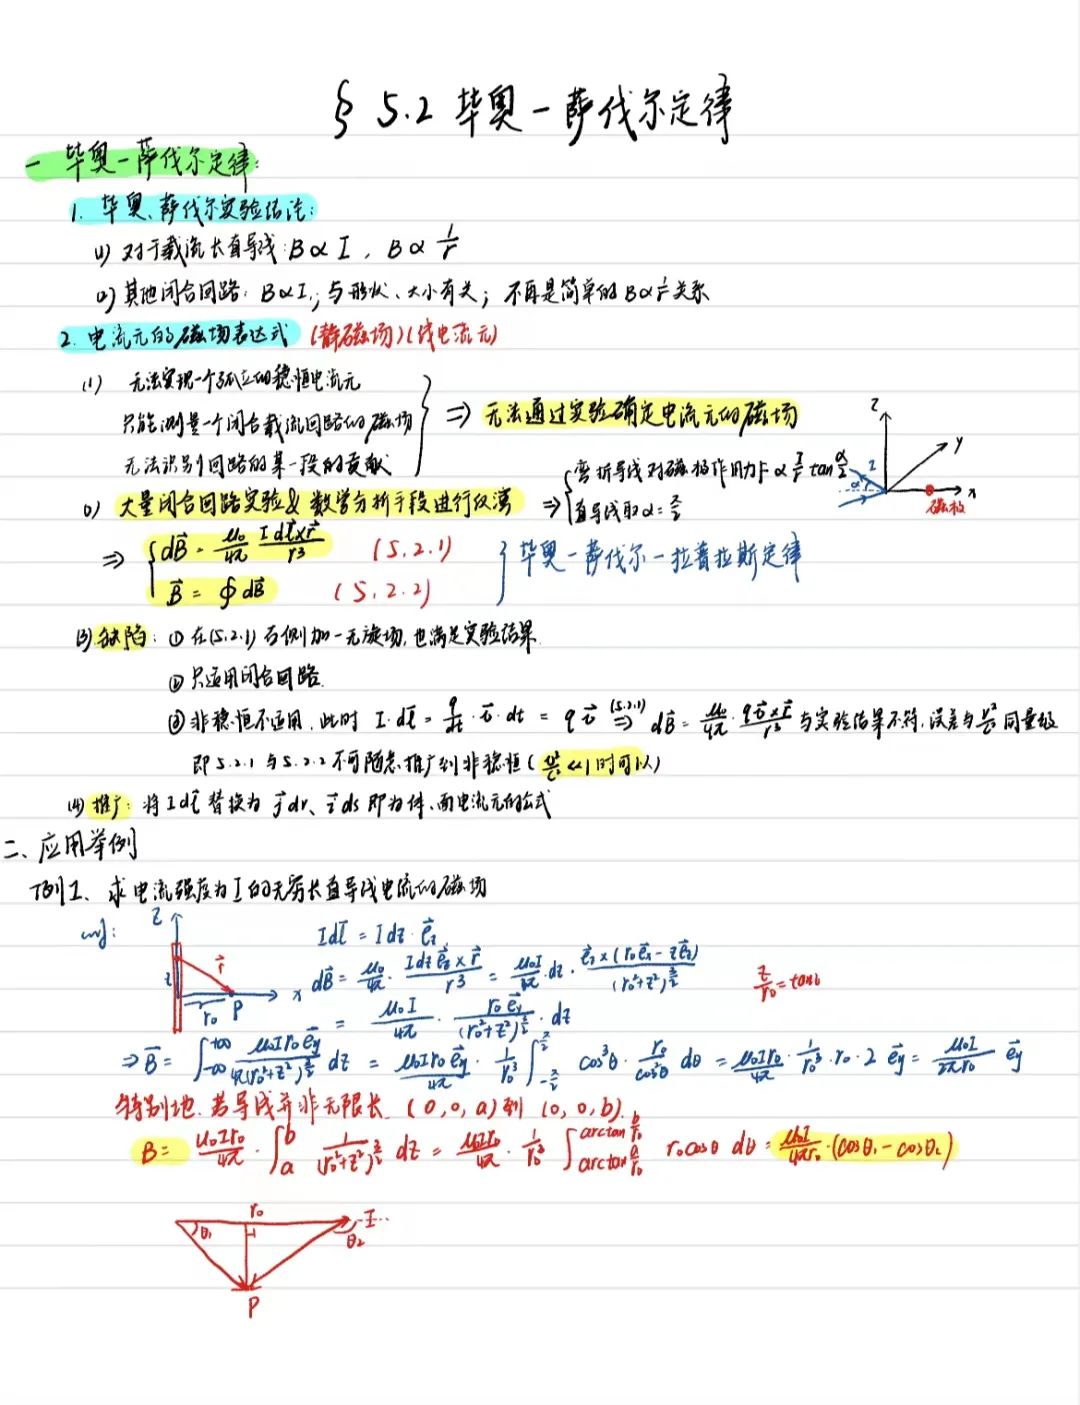 § 5.2 毕奥－萨伐尔定律
一 毕奥－萨伐尔定律:
1. 毕奥、萨伐尔实验结论:
(1) 对于载流长直导线: B∝I , B∝1/r
(2) 其他闭合回路: B∝I, 与形状、大小有关; 不再是简单的 B∝1/r 关系
2. 电流元的磁场表达式 (静磁场)(线电流元)
(1) 无法实现一个孤立的稳恒电流元
只能测量一个闭合载流回路的磁场
无法识别回路的某一段的贡献
⇒ 无法通过实验确定电流元的磁场
(2) 大量闭合回路实验 & 数学分析手段进行反演
⇒ { 弯折导线对磁极作用力 F∝ I/r tan α/2
直导线取 α= π/2
z
y
x
I
α
磁极
⇒ { dB⃗ = μ₀/4π · Idl⃗×r⃗/r³ (5.2.1)
B⃗ = ∮ dB⃗ (5.2.2)
} 毕奥－萨伐尔－拉普拉斯定律
(3) 缺陷: ① 在(5.2.1) 右侧加一无旋场, 也满足实验结果.
② 只适用闭合回路.
③ 非稳恒不适用, 此时 I·dl⃗ = q/dt · v⃗ · dt = q v⃗ (5.2.1)⇒ dB⃗ = μ₀/4π · qv⃗×r⃗/r³ 与实验结果不符, 误差与 v²/c² 同量级
即 5.2.1 与 5.2.2 不可随意推广到非稳恒 ( v²/c² ≪1 时可以)
(4) 推广: 将 Idl⃗ 替换为 j⃗dV、i⃗ds 即为体、面电流元的公式
二、应用举例
例1、求电流强度为 I 的无穷长直导线电流的磁场
z
z
r⃗
r₀
P
x
Idl⃗ = I dz · e⃗z
dB⃗ = μ₀/4π · Idz e⃗z × r⃗/r³ = μ₀I/4π · dz · e⃗z×(r₀e⃗x − ze⃗z)/(r₀²+z²)^(3/2)
z/r₀ = tanθ
= μ₀I/4π · r₀e⃗y/(r₀²+z²)^(3/2) · dz
⇒ B⃗ = ∫_{-∞}^{+∞} μ₀Ir₀e⃗y/4π(r₀²+z²)^(3/2) dz = μ₀Ir₀e⃗y/4π · 1/r₀³ ∫_{-π/2}^{π/2} cos³θ · r₀/cos²θ dθ = μ₀Ir₀/4π · 1/r₀³ · r₀ · 2 e⃗y = μ₀I/2πr₀ e⃗y
特别地, 若导线并非无限长, (0,0,a) 到 (0,0,b).
B = μ₀Ir₀/4π · ∫_a^b 1/(r₀²+z²)^(3/2) dz = μ₀Ir₀/4π · 1/r₀³ ∫_{arctan a/r₀}^{arctan b/r₀} r₀cosθ dθ = μ₀I/4πr₀ · (cosθ₁ − cosθ₂)
r₀
I
θ₁
θ₂
P